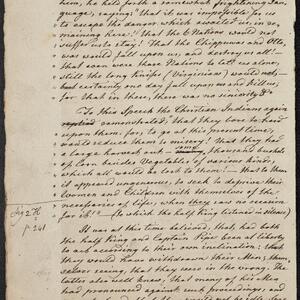 them, he held forth a somewhat frightening Lan,
guage, saying; "That it was impossible to
to escape the danger which awaited us, in re,
maining here! That the Nations would not
suffer us to stay! That the Chippuways and Otto,
was would fall upon us, and destroy us all!—
that even were these Nations to let us alone,
still the long Knife (Virginians) would not,—
but certainly one day fall upon us and kill us,
for that in these, there was no sincerity!"
To this Speech the Christian Indians again
remonstrated; That they bore too hard
upon them: for, to go at this present time,
would reduce them to misery! That they had
a large harvest and some thousand bushels
of Corn besides Vegetables of various kinds,
which all would be lost to them:— that to them
it appeared ungenerous, to seek to deprive their
Women and Children with themselves of the
necessaries of life, when they saw no occasion
for it!" (to which the half King listened in silence)
It was at this time believed, that had both
the half King and Captain Pipe been at liberty
to act according to their own inclination: that
they would have withdrawn their Men; them,
selves seeing, that they were in the wrong. The
latter also well knew; that many of his Men
had pronounced against such proceedings; and
Aug 27th
p. 241